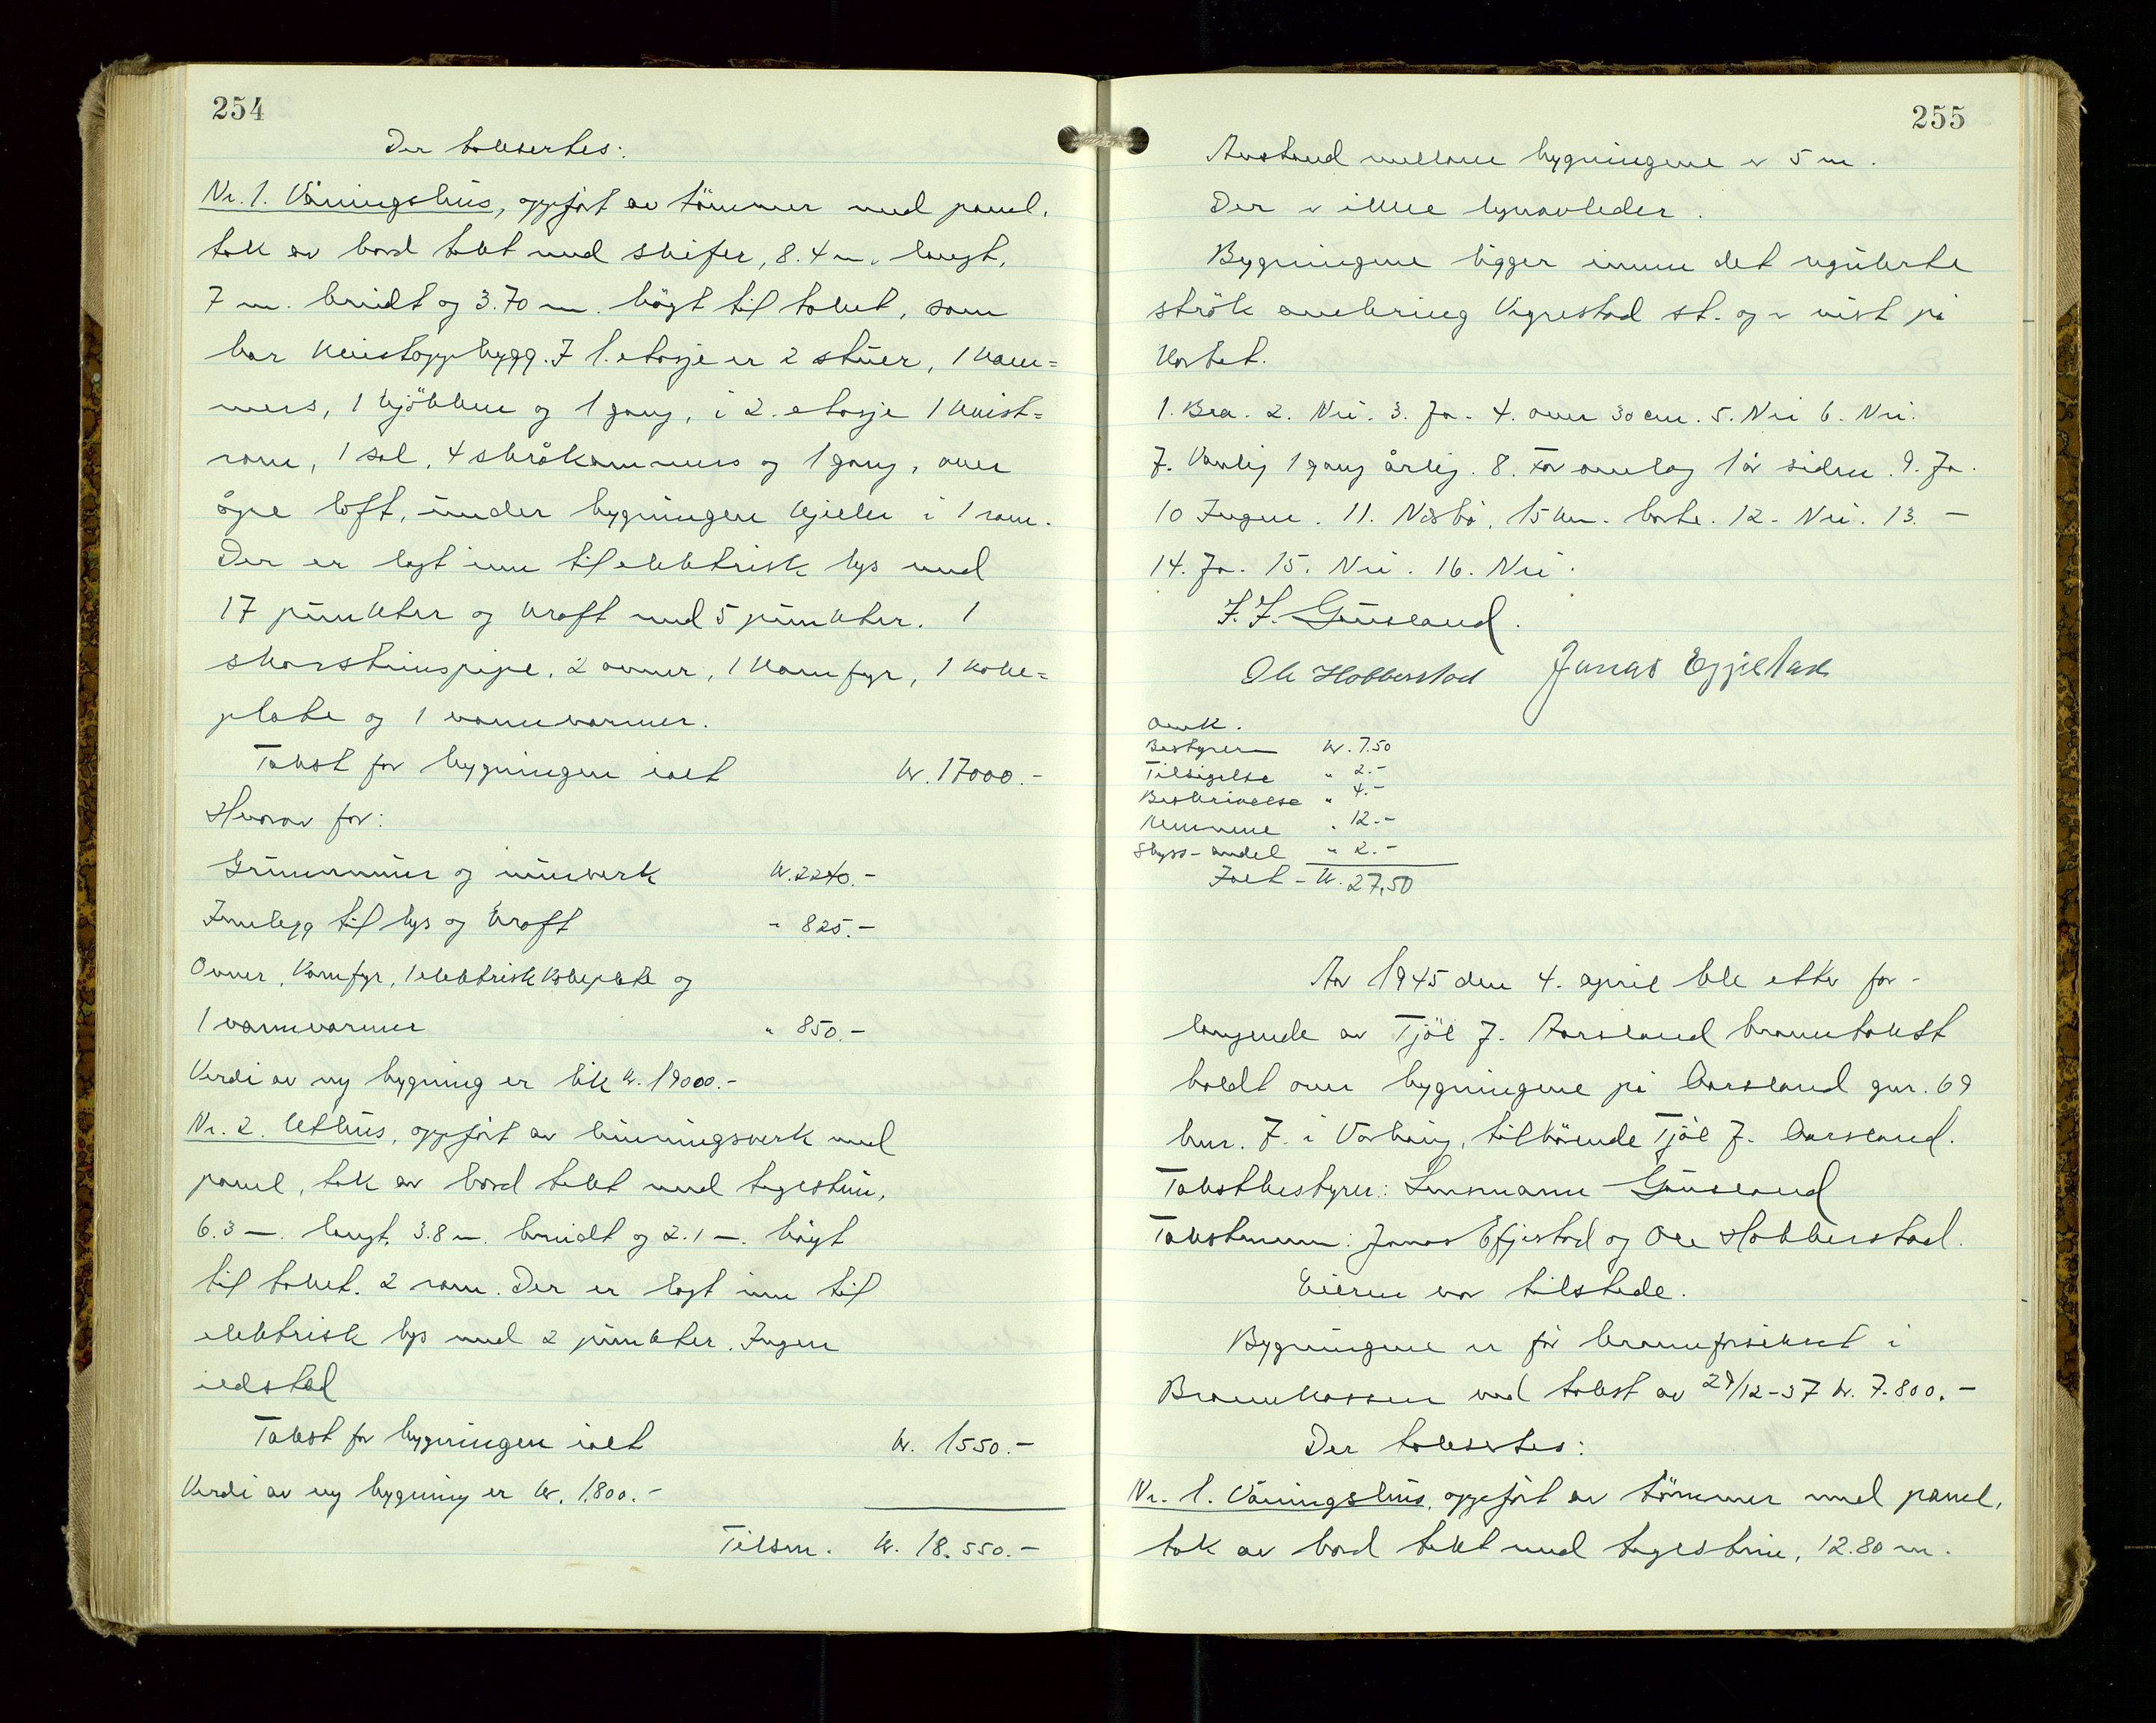 254
Der taksertes:
Nr. 1. Våningshus, oppført av tömmer med panel,
tak av bord tekt med skifer, 8.4 m. langt,
7 m. breidt og 3.70 m. högt til taket, som
har kvistoppbygg. I 1. etasje er 2 stuer, 1 kam=
mers, 1 kjökken og 1 gang, i 2. etasje 1 kvist=
rom, 1 sal, 4 skråkammers og 1 gang, over
åpe loft, under bygningen kjeller i 1 rom.
Der er lagt inn til elektrisk lys med
17 punkter og kraft med 5 punkter. 1
skorsteinspipe, 2 ovner, 1 komfyr, 1 koke=
plate og 1 vannvarmer.
Takst for bygningen ialt kr. 17000.-
Hvorav for:
Grunnmur og murverk kr. 2240.-
Innlegg til lys og kraft " 825.-
Ovner, komfyr, 1 elektrisk kokeplate og
1 vannvarmer " 850.-
Verdi av ny bygning er lik kr. 19000.-
Nr. 2. Uthus, oppført av binningsverk med
panel, tak av bord tekt med teglstein,
6.3 m. langt, 3.8 m. breidt og 2.1 m. högt
til taket. 2 rom. Der er lagt inn til
elektrisk lys med 2 punkter. Ingen
ildsted
Takst for bygningen ialt kr. 1550.-
Verdi av ny bygning er kr. 1.800.-
Tilsm. kr. 18.550.-
255
Avstand mellom bygningene er 5 m.
Der er ikke lynavleder.
Bygningene ligger innen det regulerte
strök omkring Vigrestad st. og er vist på
kartet.
1. Bra. 2. Nei. 3. Ja. 4. over 30 cm. 5. Nei 6. Nei.
7. Vanlig 1 gang årlig. 8. For omlag 1 år siden. 9. Ja.
10 Ingen. 11. Nærbö, 15 km. borte. 12. Nei. 13. -
14. Ja. 15. Nei. 16. Nei.
J. J. Gausland.
Ole Hobberstad Jonas Eggjestad
Omk.
Bestyreren kr. 7.50
Tilsigelse " 2.-
Beskrivelse " 4.-
Mennene " 12.-
Skyss-andel " 2.-
Ialt - kr. 27,50
År 1945 den 4. april ble etter for-
langende av Tjöl J. Aarsland branntakst
holdt over bygningene på Aarsland gnr. 69
bnr. 7. i Varhaug, tilhörende Tjöl J. Aarsland.
Takstbestyrer: Lensmann Gausland
Takstmenn: Jonas Eggjestad og Ole Hobberstad.
Eieren var tilstede.
Bygningene er før brannforsikret i
Brannkassen ved takst av 29/12-37 kr. 7.800.-
Der taksertes:
Nr. 1. Våningshus, oppført av tömmer med panel,
tak av bord tekt med teglstein, 12.80 m.